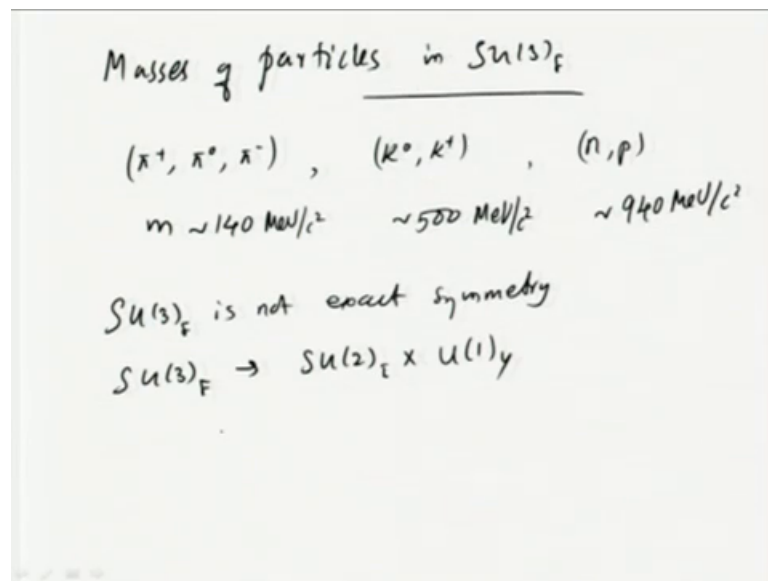 Masses of particles in SU(3)_F
(π⁺, π⁰, π⁻) , (K⁰, K⁺) , (n, p)
m ~140 MeV/c² ~500 MeV/c² ~940 MeV/c²
SU(3)_F is not exact symmetry
SU(3)_F → SU(2)_I × U(1)_Y